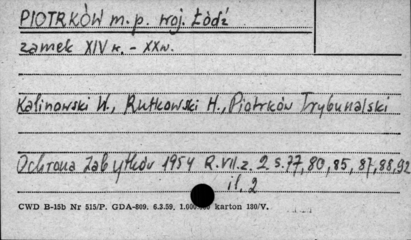 PIOTRKÓW m.p. woj. Łódź
zamek XIV w. - XX w.
Kalinowski W., Rutkowski H., Piotrków Trybunalski
Ochrona Zabytków 1954 R.VII.z. 2 s.77,80,85,87,88,92
il. 2
CWD B-15b Nr 515/P. GDA-809. 6.3.59. karton 180/V.